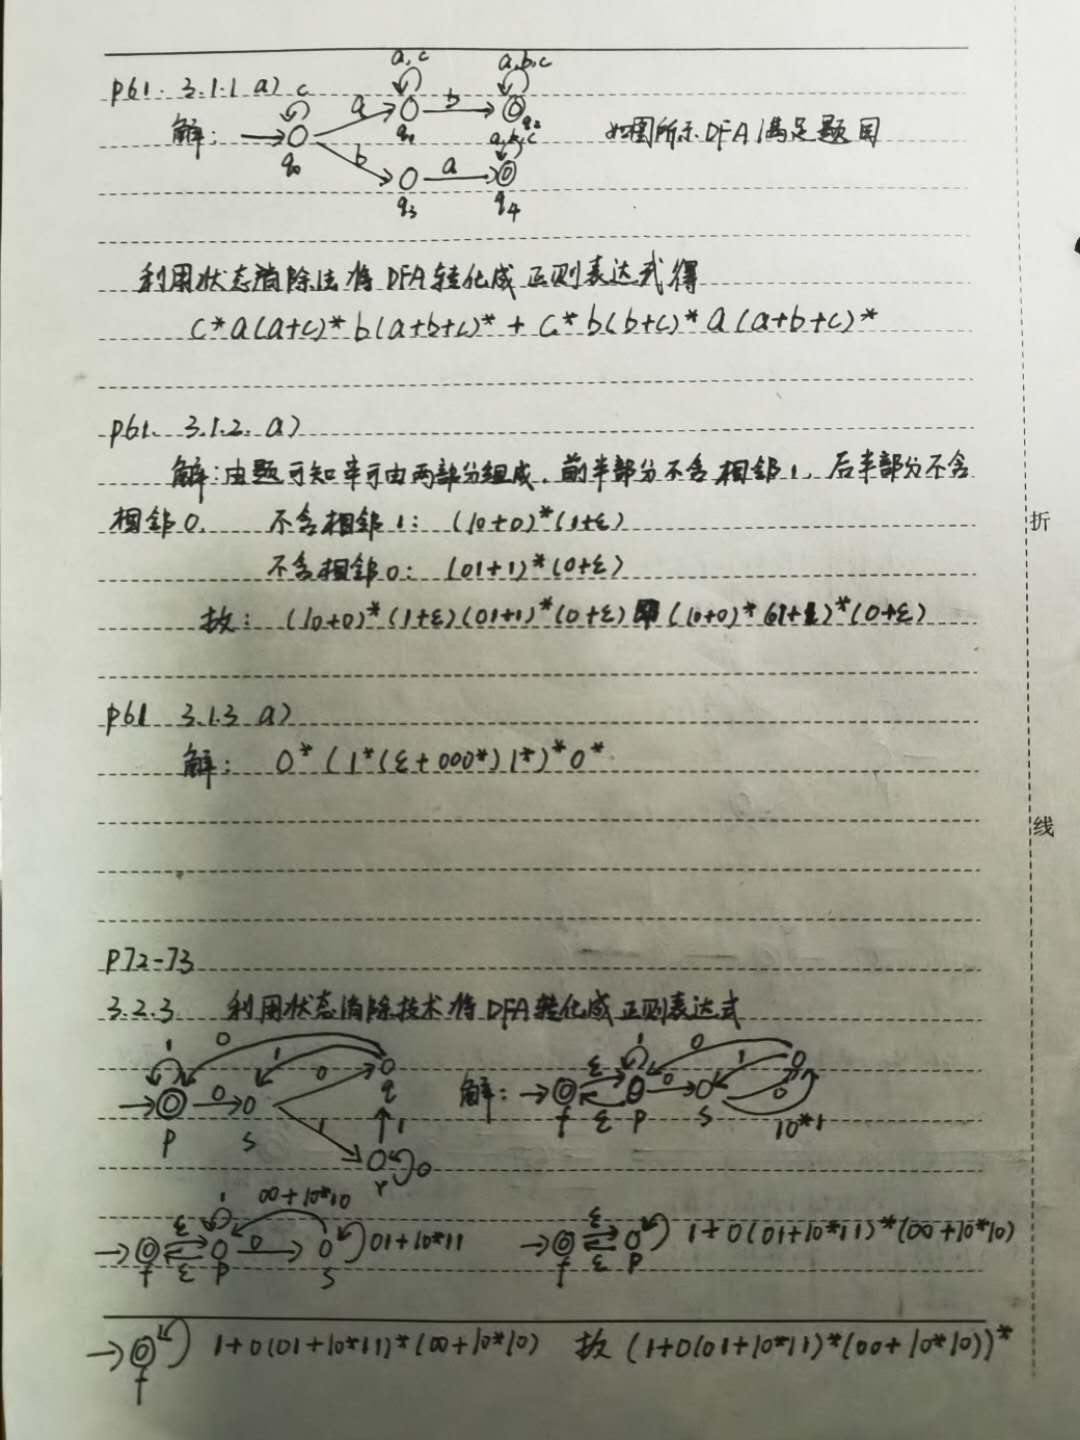 P61. 3.1.1 a) c a a,c b a,b,c
解: q0 q1 q2
b a a,b,c 如图所示DFA满足题目
q3 q4
利用状态消除法将DFA转化成正则表达式得
c*a(a+c)*b(a+b+c)* + c*b(b+c)*a(a+b+c)*
P61. 3.1.2. a)
解:由题可知串可由两部分组成.前半部分不含相邻1,后半部分不含
相邻0. 不含相邻1: (10+0)*(1+ε)
不含相邻0: (01+1)*(0+ε)
故: (10+0)*(1+ε)(01+1)*(0+ε)即(10+0)*(01+1)*(0+ε)
P61 3.1.3 a)
解: 0*(1*(ε+000*)1*)*0*
P72-73
3.2.3 利用状态消除技术将DFA转化成正则表达式
1 0 1 0 0 1 q 1 p s r 0
解: ε ε 1 0 0 1 0 10*1 f p s
ε ε 1 0 00+10*10 01+10*11 f p s
ε ε 1+0(01+10*11)*(00+10*10) f p
1+0(01+10*11)*(00+10*10) 故 (1+0(01+10*11)*(00+10*10))*
f
折
线